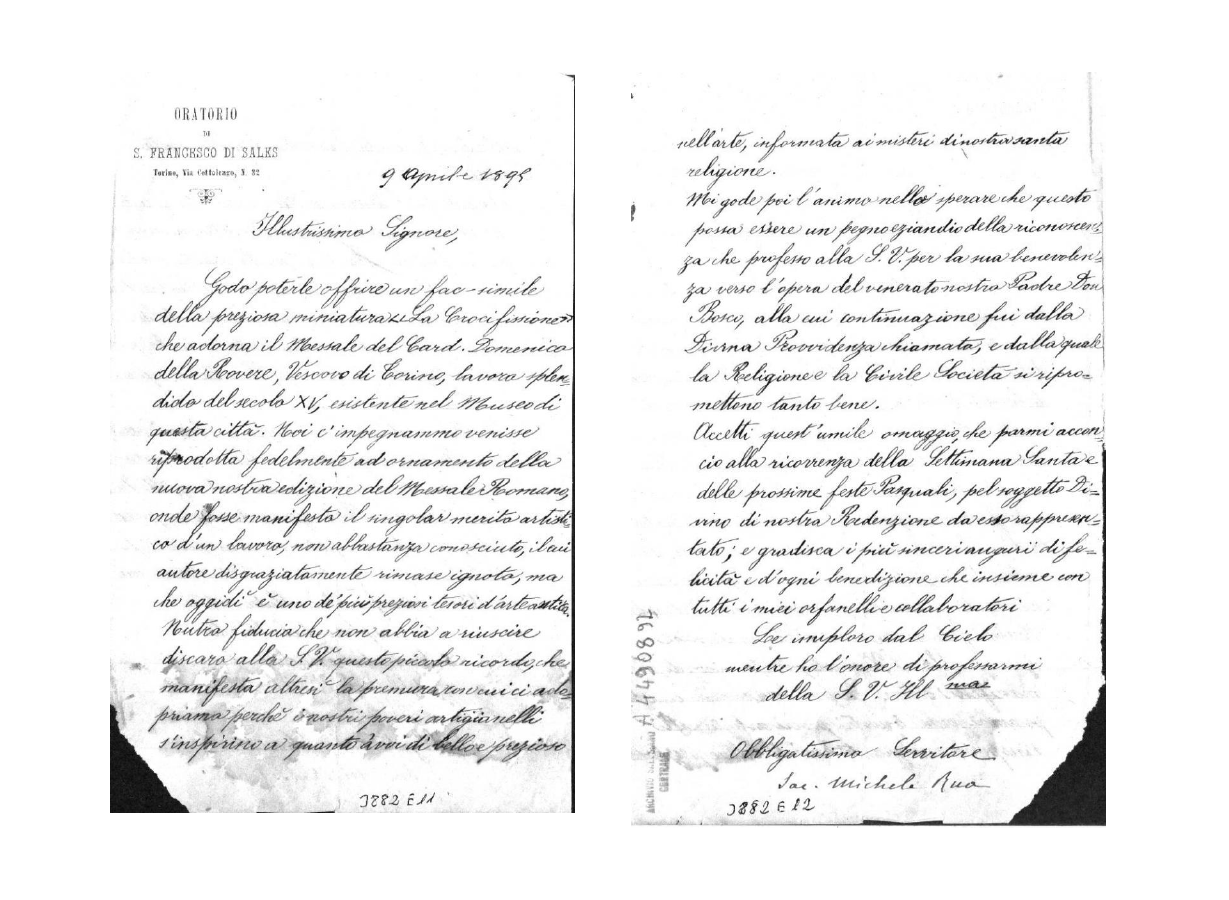 ORATORIO
DI
S. FRANCESCO DI SALES
Torino, Via Cottolengo, N. 32
9 Aprile 1895
Illustrissimo Signore,
Godo poterle offrire un fac-simile
della preziosa miniatura « La Crocifissione »
che adorna il Messale del Card. Domenico
della Rovere, Vescovo di Torino, lavoro splen=
dido del secolo XV, esistente nel Museo di
questa città. Noi c'impegnammo venisse
riprodotta fedelmente ad ornamento della
nuova nostra edizione del Messale Romano,
onde fosse manifesto il singolar merito artisti=
co d'un lavoro, non abbastanza conosciuto, il cui
autore disgraziatamente rimase ignoto, ma
che oggidì è uno de' più preziosi tesori d'arte antica.
Nutro fiducia che non abbia a riuscire
discaro alla S. V. questo piccolo ricordo, che
manifesta altresì la premura con cui ci ado=
priamo perchè i nostri poveri artigianelli
s'inspirino a quanto avvi di bello e prezioso
J882 E11
nell'arte, informata ai misteri di nostra santa
religione.
Mi gode poi l'animo nello sperare che questo
possa essere un pegno eziandio della riconoscen=
za che professo alla S. V. per la sua benevolen=
za verso l'opera del venerato nostro Padre Don
Bosco, alla cui continuazione fui dalla
Divina Provvidenza chiamato, e dalla quale
la Religione e la Civile Società si ripro=
mettono tanto bene.
Accetti quest'umile omaggio, che parmi accon=
cio alla ricorrenza della Settimana Santa e
delle prossime feste Pasquali, pel soggetto Di=
vino di nostra Redenzione da esso rappresen=
tato; e gradisca i più sinceri auguri di fe=
licità e d'ogni benedizione che insieme con
tutti i miei orfanelli e collaboratori
Le imploro dal Cielo
mentre ho l'onore di professarmi
della S. V. Ill ma
Obbligatissimo Servitore
Sac. Michele Rua
J882 E12
A4490894
ARCHIVIO
CENTRALE